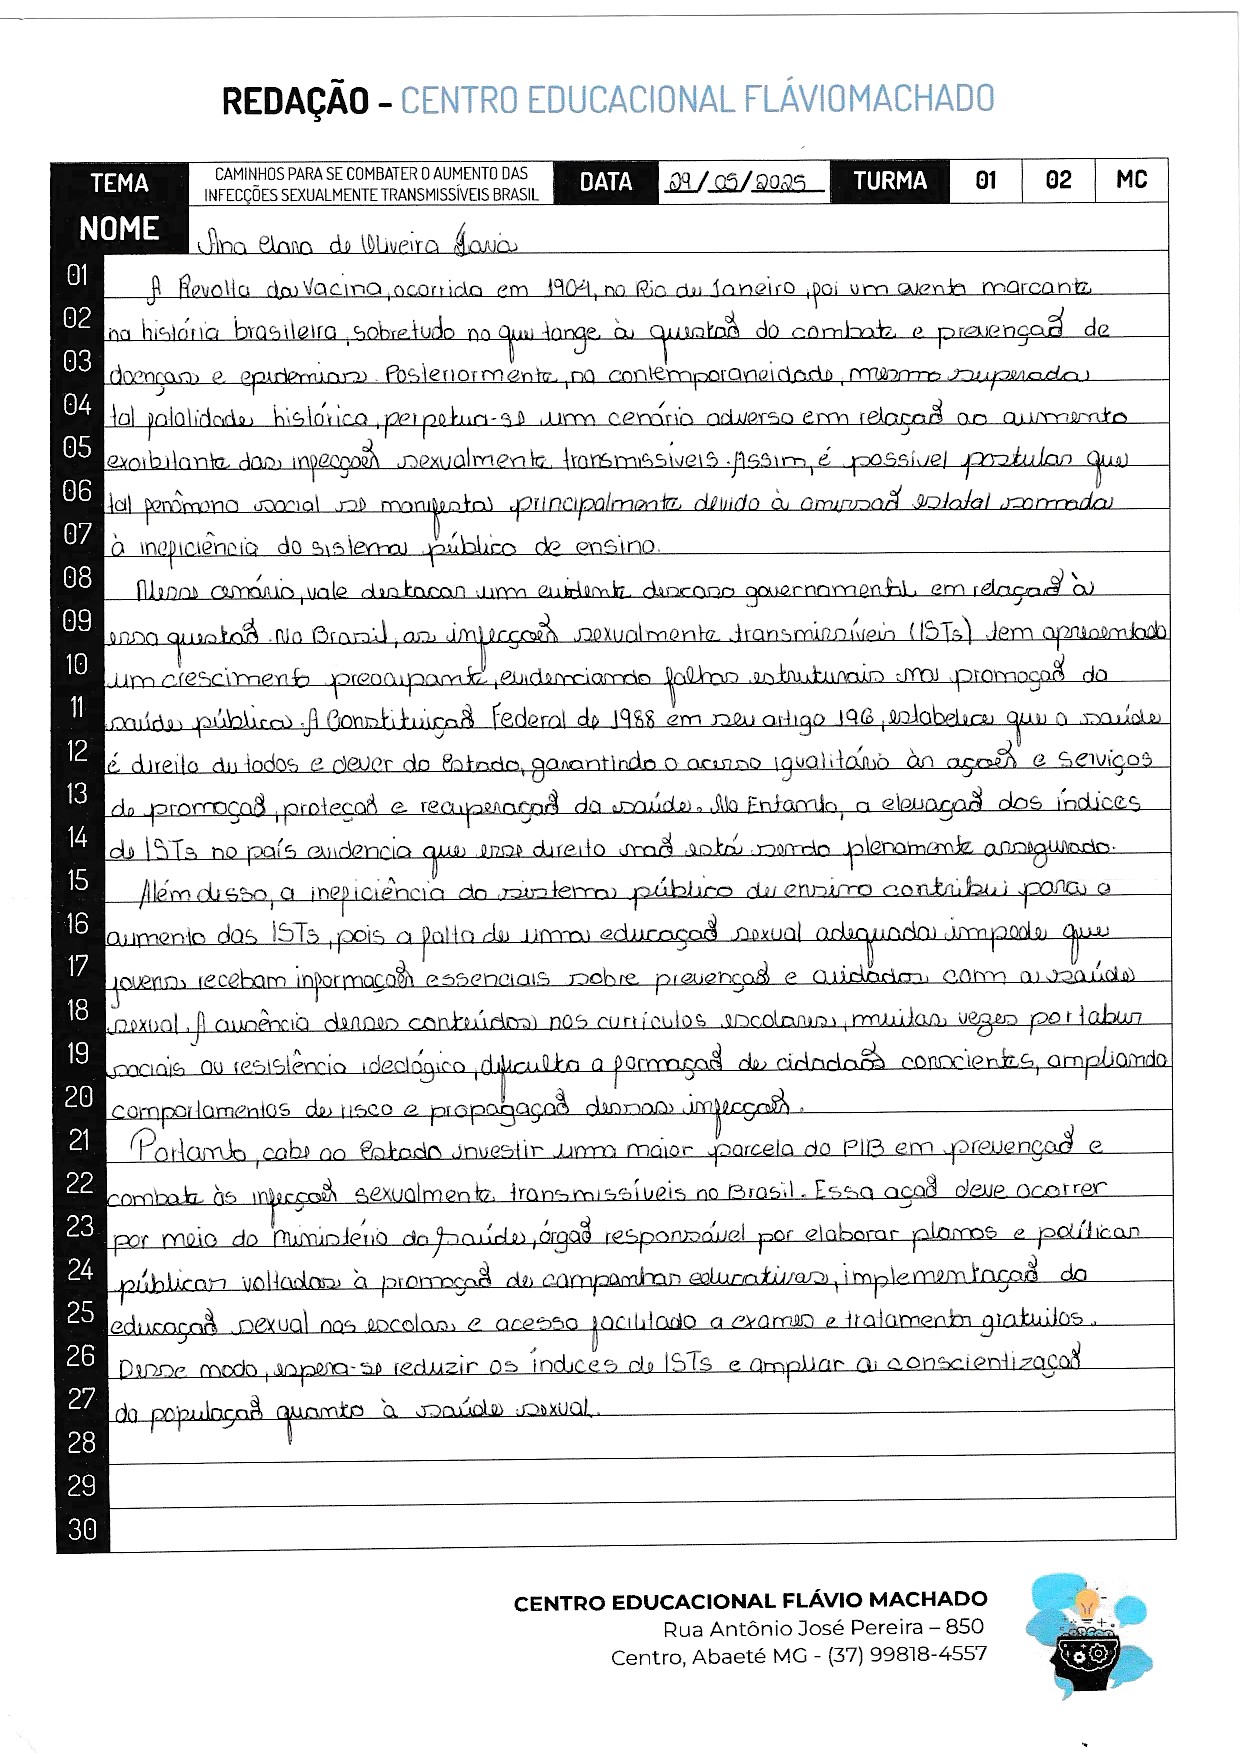 REDAÇÃO - CENTRO EDUCACIONAL FLÁVIOMACHADO
TEMA CAMINHOS PARA SE COMBATER O AUMENTO DAS INFECÇÕES SEXUALMENTE TRANSMISSÍVEIS BRASIL DATA 29/05/2025 TURMA 01 02 MC
NOME Ana Clara de Oliveira
01 A Revolta da Vacina, ocorrida em 1904, no Rio de Janeiro, foi um evento marcante
02 na história brasileira, sobretudo no que tange à questão do combate e prevenção de
03 doenças e epidemias. Posteriormente, na contemporaneidade, mesmo superada
04 tal fatalidade histórica, perpetua-se um cenário adverso em relação ao aumento
05 exorbitante das infecções sexualmente transmissíveis. Assim, é possível postular que
06 tal fenômeno social se manifesta principalmente devido à omissão estatal somada
07 à ineficiência do sistema público de ensino.
08 Nesse cenário, vale destacar um evidente descaso governamental em relação à
09 essa questão. No Brasil, as infecções sexualmente transmissíveis (ISTs) tem apresentado
10 um crescimento preocupante, evidenciando falhas estruturais na promoção da
11 saúde pública. A Constituição Federal de 1988 em seu artigo 196, estabelece que a saúde
12 é direito de todos e dever do Estado, garantindo o acesso igualitário às ações e serviços
13 de promoção, proteção e recuperação da saúde. No Entanto, a elevação dos índices
14 de ISTs no país evidencia que esse direito não está sendo plenamente assegurado.
15 Além disso, a ineficiência do sistema público de ensino contribui para o
16 aumento das ISTs, pois a falta de uma educação sexual adequada impede que
17 jovens recebam informações essenciais sobre prevenção e cuidados com a saúde
18 sexual. A ausência desses conteúdos nos currículos escolares, muitas vezes por tabus
19 sociais ou resistência ideológica, dificulta a formação de cidadãos conscientes, ampliando
20 comportamentos de risco e propagação dessas infecções.
21 Portanto, cabe ao Estado investir uma maior parcela do PIB em prevenção e
22 combate às infecções sexualmente transmissíveis no Brasil. Essa ação deve ocorrer
23 por meio do Ministério da Saúde, órgão responsável por elaborar planos e políticas
24 públicas voltadas à promoção de campanhas educativas, implementação da
25 educação sexual nas escolas e acesso facilitado a exames e tratamento gratuitos.
26 Desse modo, espera-se reduzir os índices de ISTs e ampliar a conscientização
27 da população quanto à saúde sexual.
28
29
30
CENTRO EDUCACIONAL FLÁVIO MACHADO
Rua Antônio José Pereira – 850
Centro, Abaeté MG - (37) 99818-4557